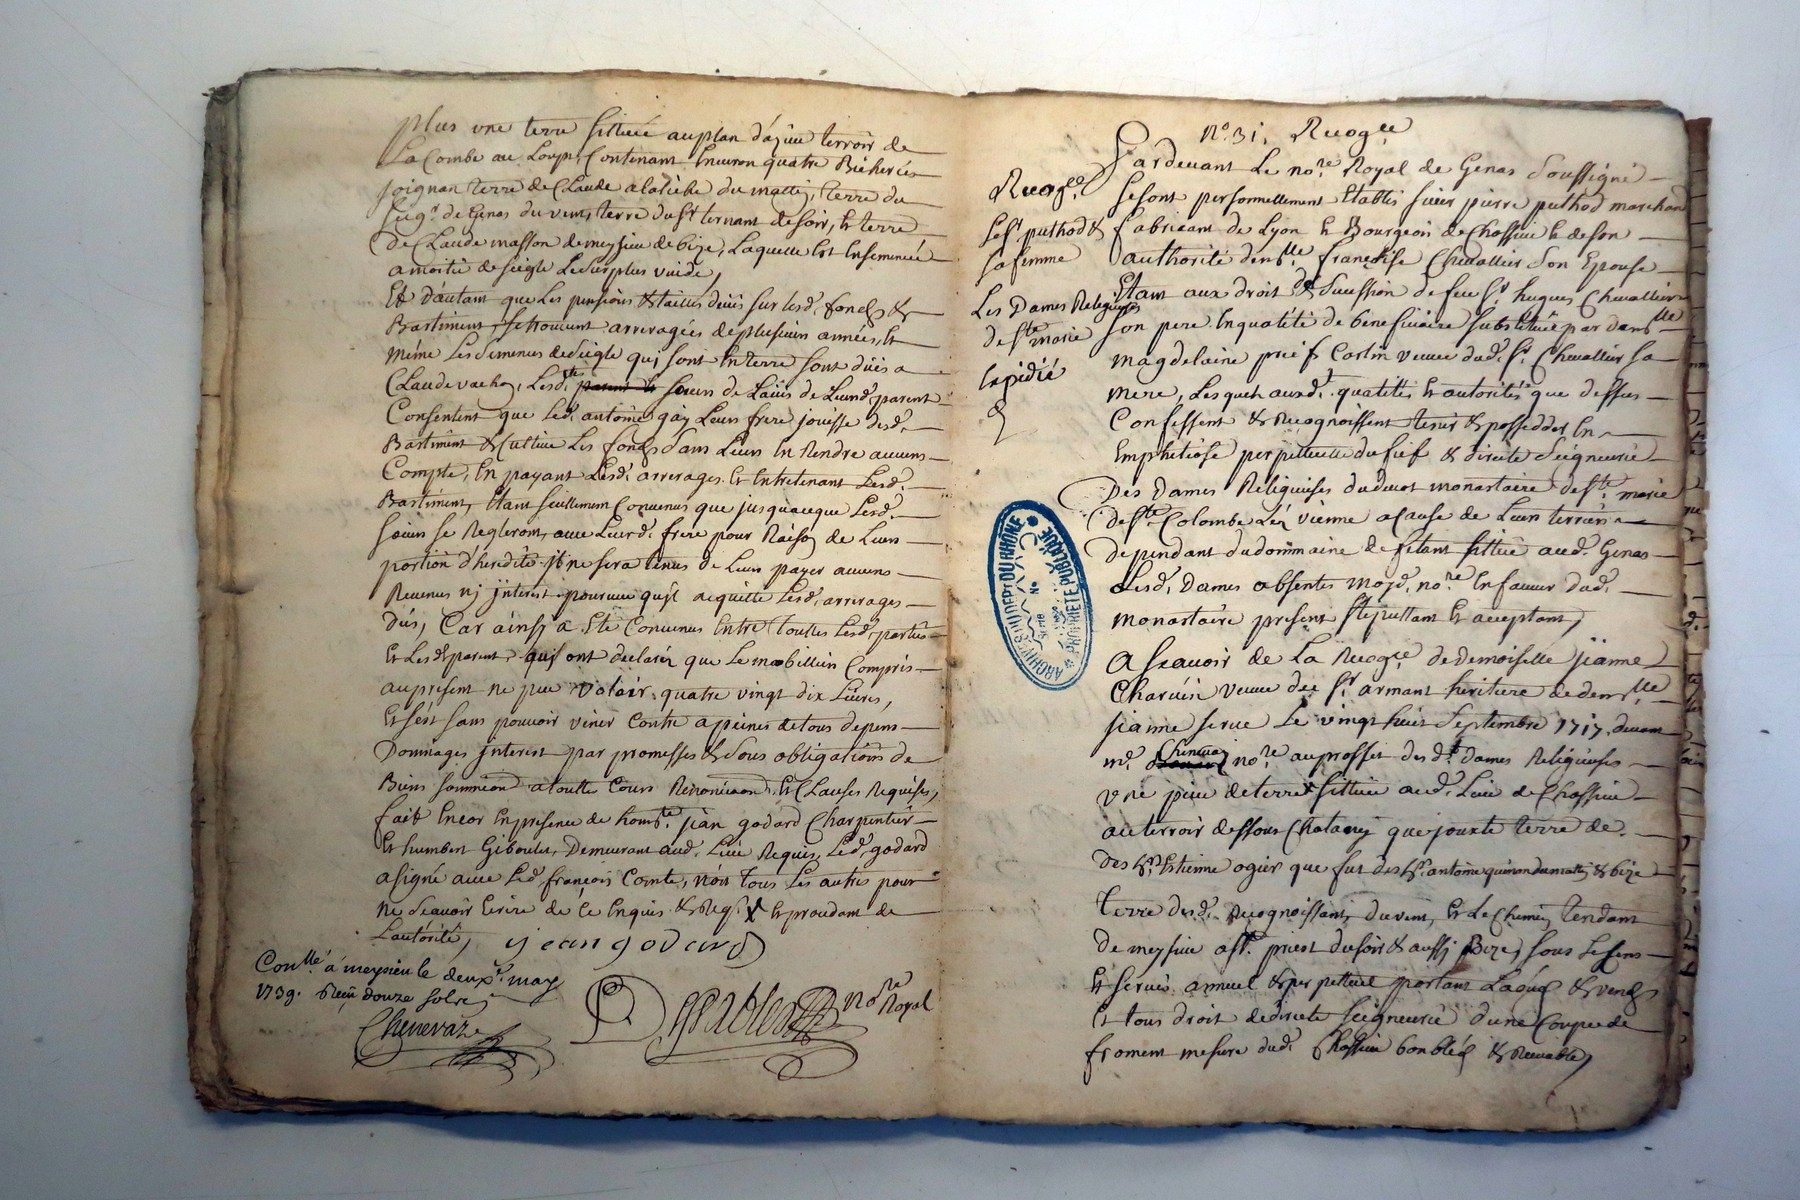 plus une terre sittuée au plan d'azieu terroir de
La Combe au Loup, Contenant Environ quatre Bicherées
joignan terre de Claude alatiebe du mattin, terre du
seigr de Genas du vent, terre du sr ternant de soir, Et terre
De Claude masson de meysieu de bize, Laquelle Est Ensemencée
amoitié de seigle Le surplus vuide,
Et D'autam que Les pensions & tailles deües sur lesd. fonds &
Bastiment, se trouvent arreragées de plusieurs années, Et
même Les Semences de seigle qui sont En terre sont düës a
Claude vachon, Lesd.tes soeurs de L'avis de Leursd. parent
Consentent que led. antoine gay Leur frere jouisse desd.
Bastiment & Cultive Les fonds sans Leur En Rendre aucuns
Compte, En payant Lesd. arrerages Et Entretenant Lesd.
Bastiment, Etant seullement Convenus que jusquaceque Lesd.
soeurs se Regleront, avec Leurd. frere pour Raison de Leurs
portion d'heredité il ne sera tenus de Leurs payer aucuns
Revenus nj jnterest pourveu quil acquitte Lesd. arrerages
düs, Car ainsy a Eté Convenus Entre touttes Lesd. parties
Et Lesd. parent, quj ont declaréz que Le mobillier Compris
aupresent ne peu valoir quatre vingt dix Livres,
Et s'est sans pouvoir venir Contre apeines de tous depens
Dommages jnterest par promesses & sous obligations de
Biens soumission atouttes Cours Renonciaon, Et Clauses Requises,
fait Encor En presence de hon.ble jean godard Charpentier
Et humbert Giboulet, Demeurant aud. Lieu Requis, Led. godard
a signé avec Led. françois Comte, non tous Les autres pour
ne sçavoir Ecrire de Ce Enquis & Reqs Et proudant de
L'autorité, j jean godard
Conllé a meysieu le deuxe. may
1739. Reçu douze sols
Chenevaz
nore Royal
No. 31. Recogce
Recogce
Le sr puthod &
sa femme
Les Dames Religieuses
de ste marie
Expedié
Pardevant Le nore Royal de Genas Soussigné
se sont personnellement Etablis sieur pierre puthod marchand
fabricant de Lyon & Bourgeois de Chassieu & de son
authorité demlle françoise Chevallier son Epouse
Etant aux droit & sucession de feu sr hugues Chevallier
son pere En qualité de beneficiaire substituée par damlle
magdelaine Corlin veuve dud. sr Chevallier sa
mere, Lesquels auxd. qualités & autorités que dessus
Confessent & Recognoissent tenir & possedder En
Emphiteose perpettuelle du fief & directe seigneurie
Des Dames Religieuses dudevot monastaire de ste marie
de ste Colombe Léz vienne a Cause de Leur terrier
dependant dudommaine de fetant sittué aud. Genas
Lesd. Dames absentes moyd. nore En faveur dud.
monastaire present stipullant Et acceptant,
a sçavoir de La Recogce de Demoiselle jeanne
Charvin veuve de sr armant heritiere de demlle
jeanne serve Le vingt huit Septembre 1717, devant
me. Chenevaz nore au proffit des de. Dames Religieuses
une piece de terre sittuée aud. Lieu de Chassieu
au terroir dessous Chatanay que jouxte terre de
des hrs Estienne ogier que fut des hrs antoine quinon du matin & bize
terre desd. Recognoissants, du vent, Et Le Chemin tendant
de meysieu a st. priest du soir & aussj Bize, sous Le sens
Et servis annuel & perpettuel portant Laods & vends
Et tous droit de directe seigneurie d'une Coupe de
froment mesure dud. Chassieu bon bled & Recevable,
ARCHIVES DU DEPT DU RHÔNE
PROPRIÉTÉ PUBLIQUE